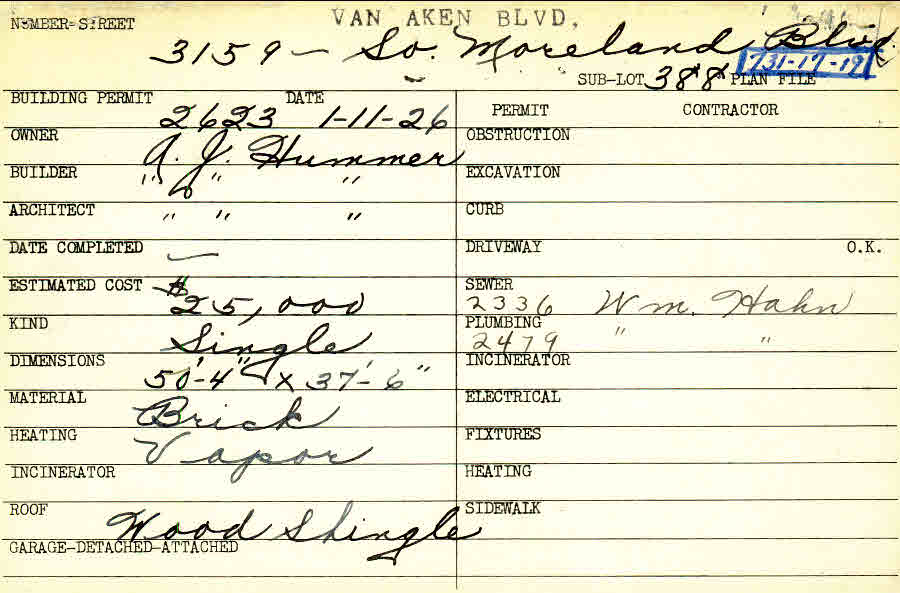 VAN AKEN BLVD.
NUMBER-STREET
3159 - So. Moreland Blvd.
731-17-19
SUB-LOT 388 PLAN FILE
BUILDING PERMIT DATE
2623 1-11-26
PERMIT CONTRACTOR
OWNER A. J. Hummer
OBSTRUCTION
BUILDER " " "
EXCAVATION
ARCHITECT " " "
CURB
DATE COMPLETED —
DRIVEWAY O.K.
ESTIMATED COST $25,000
SEWER
2336 Wm. Hahn
KIND Single
PLUMBING
2479 " "
DIMENSIONS 50'-4" x 37'-6"
INCINERATOR
MATERIAL Brick
ELECTRICAL
HEATING Vapor
FIXTURES
INCINERATOR
HEATING
ROOF Wood Shingle
SIDEWALK
GARAGE-DETACHED-ATTACHED